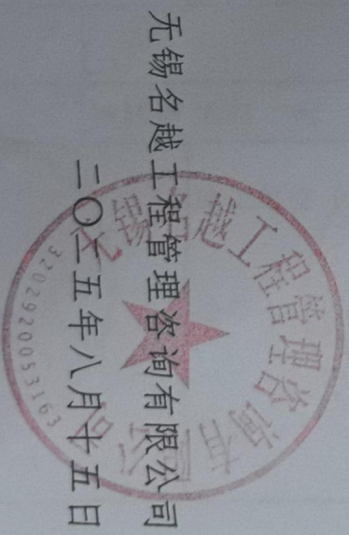 无锡名越工程管理咨询有限公司
二〇二五年八月十五日
无锡名越工程管理咨询有限公司
3202920053163